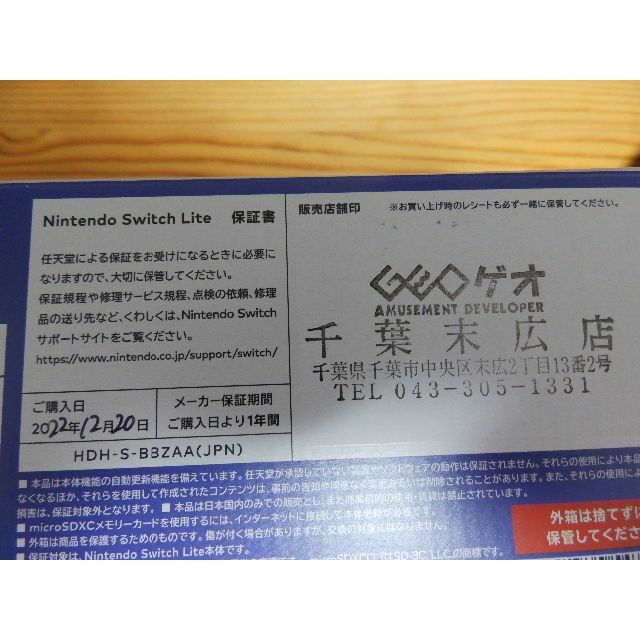 Nintendo Switch Lite 保証書
任天堂による保証をお受けになるときに必要に
なりますので、大切に保管してください。
保証規程や修理サービス規程、点検の依頼、修理
品の送り先など、くわしくは、Nintendo Switch
サポートサイトをご覧ください。
https://www.nintendo.co.jp/support/switch/
ご購入日
2022年12月20日
メーカー保証期間
ご購入日より1年間
HDH-S-BBZAA(JPN)
販売店舗印
※お買い上げ時のレシートも必ず一緒に保管してください。
GEO ゲオ
AMUSEMENT DEVELOPER
千葉末広店
千葉県千葉市中央区末広2丁目13番2号
TEL 043-305-1331
■本品は本体機能の自動更新機能を備えています。任天堂が承認していない装置やソフトウェアの動作は保証されません。それらの使用により本
なくなるほか、それらを使用して作成されたコンテンツは、事前の告知や同意なく、削除されることがあります。また、それらの使用に
損害は、保証対象外となります。■本品は日本国内のみでの販売とし、また商業目的の使用・賃貸は禁止されています。
■microSDXCメモリーカードを使用するには、インターネットに接続して本体更新が必要です。
■外箱は商品を保護するためのものです。傷が付く場合がありますが、交換の対象にはなりません。
■保証対象は、Nintendo Switch Lite本体です。
外箱は捨てずに
保管してくださ